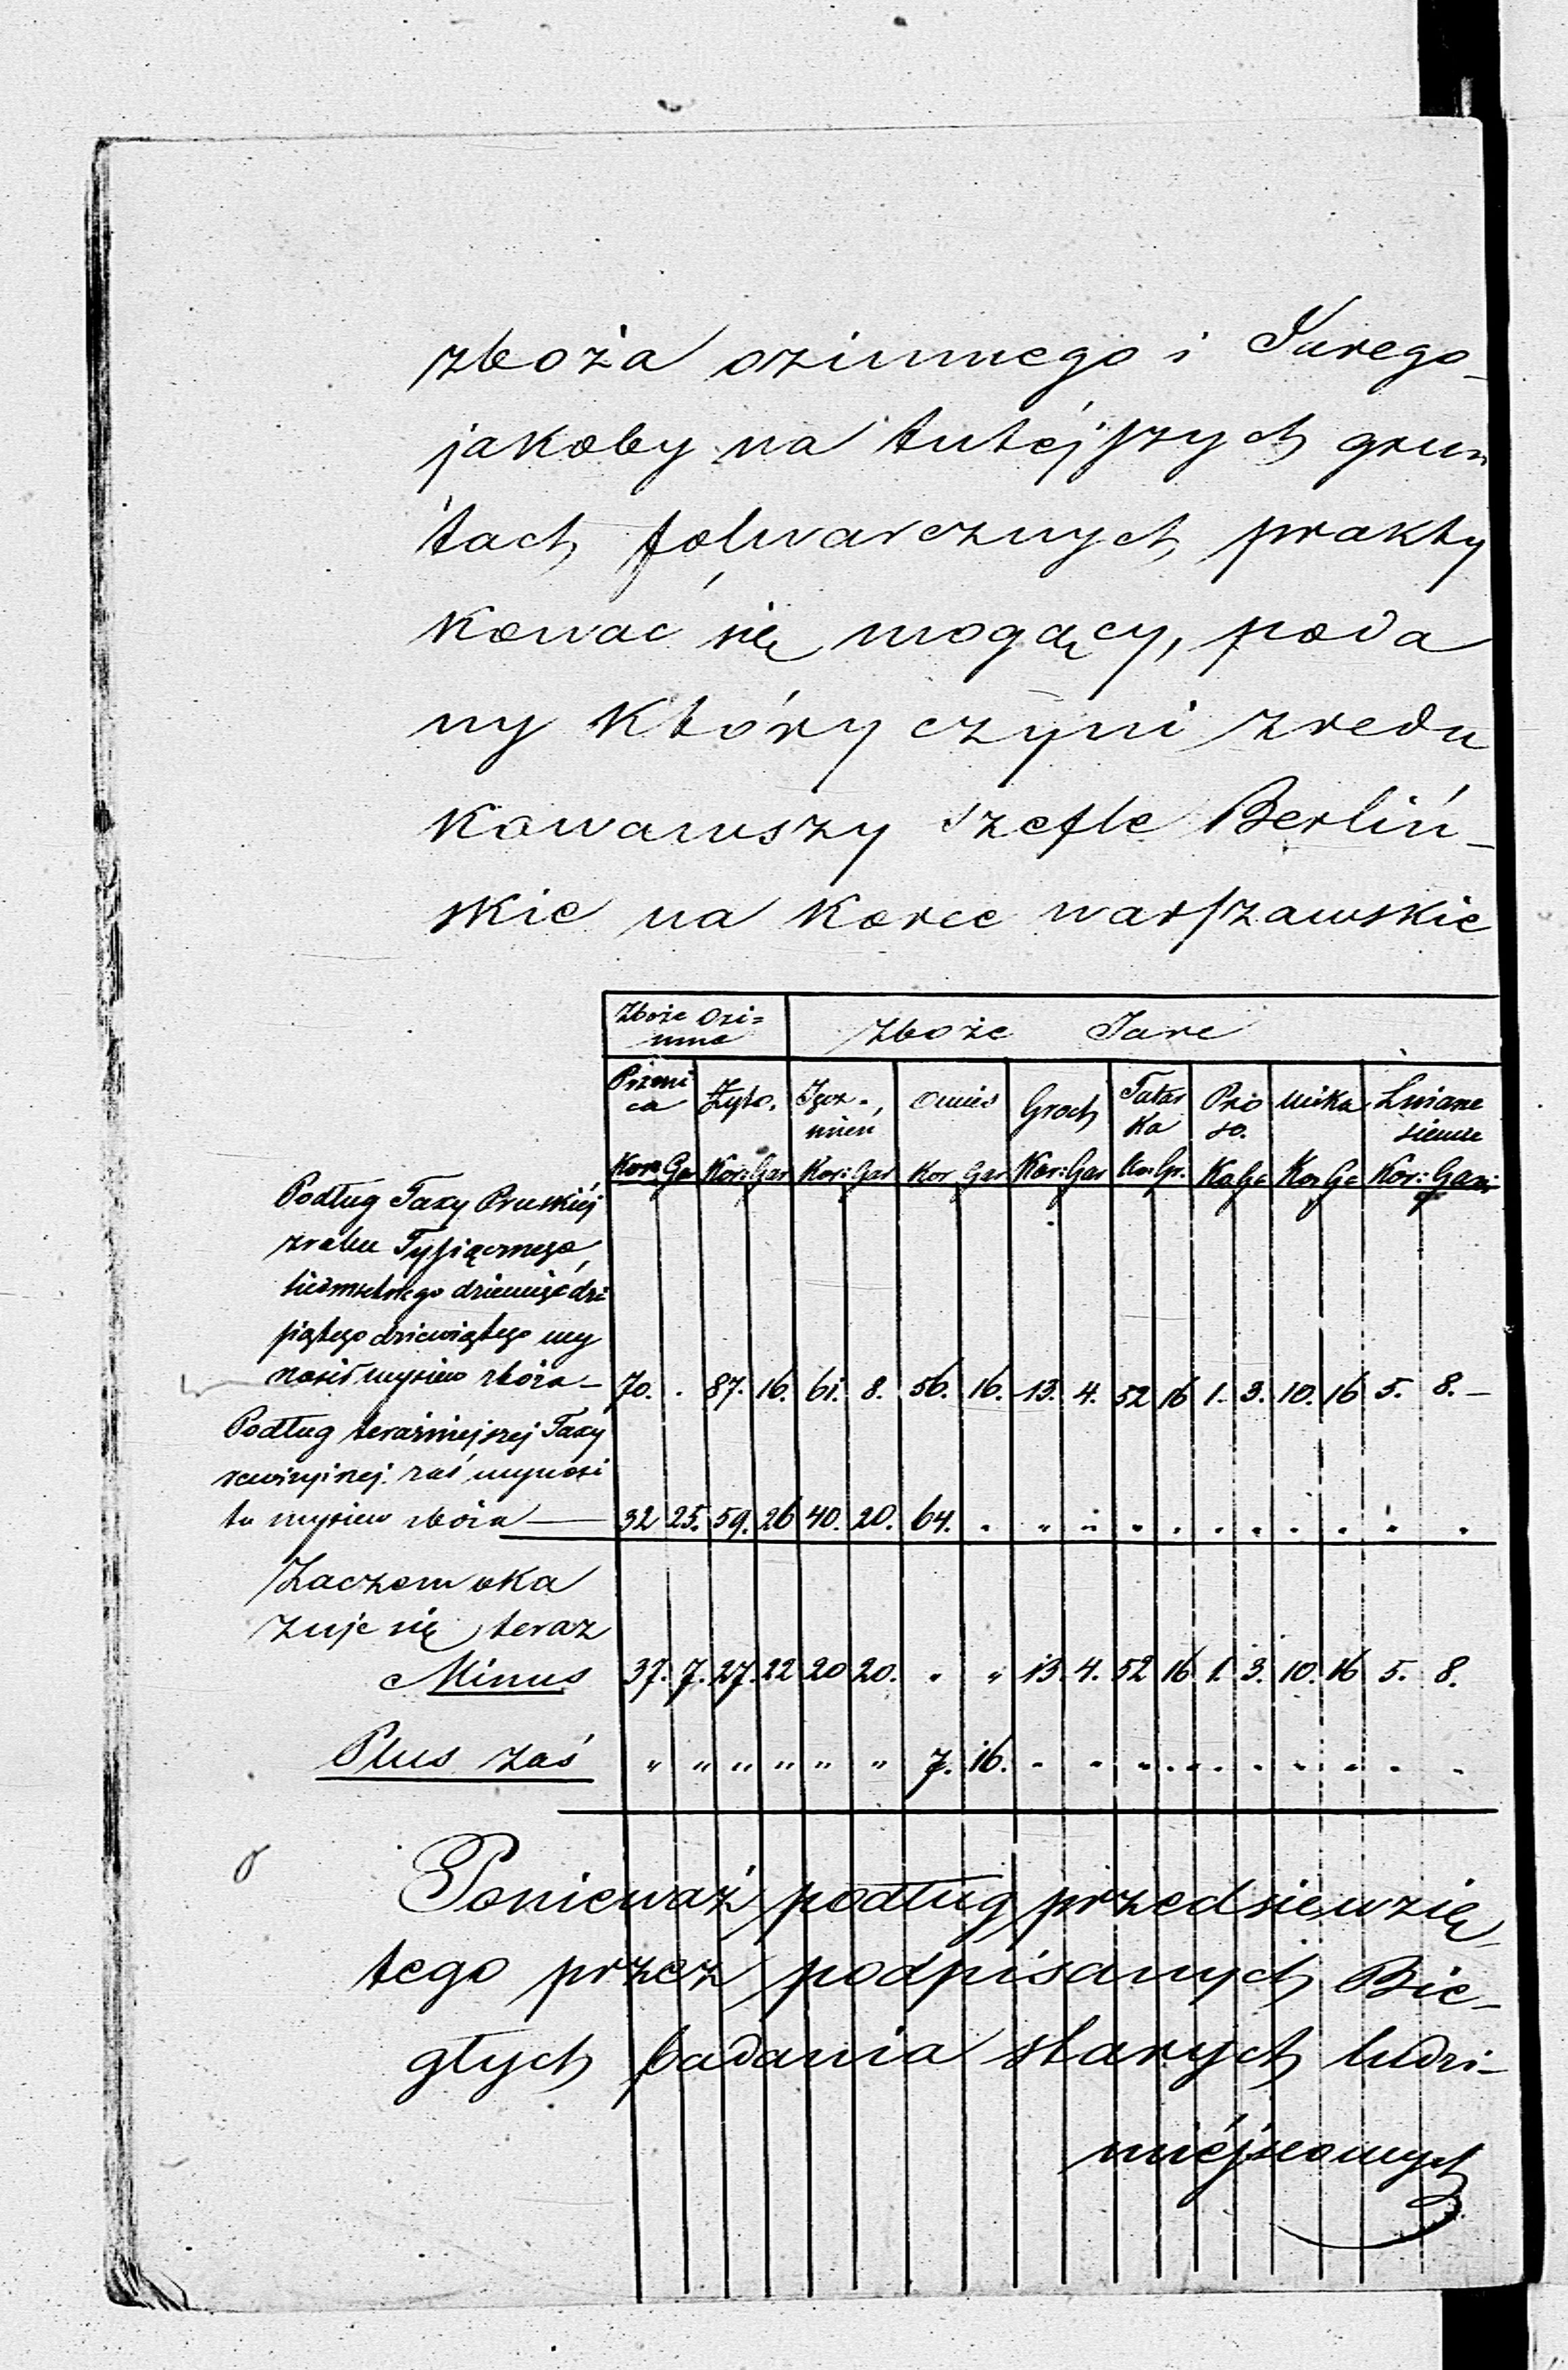 zboża ozimnego i Jarego
jakoby na tutéjszych grun
tach folwarcznych prakty
kować się mogący, poda
ny który czyni zredu
kowawszy szefle Berliń-
skie na korce warszawskie
Zboże Ozi=
mne
Zboże Jare
Pszeni
ca Żyto. Jęcz-
mień Owies Groch Tatar
ka Pro
so. Wika Lniane
siemie
Kor: Ga Kor: Gar Kor: Gar Kor Gar Kor: Gar Ko: Gr. Ko Ga Kor Ga Kor: Gar:
Podług Taxy Pruskiéj
z roku Tysiącznego,
siedmsetnego dziewięćdzie
siątego dziewiątego wy
nosił wysiew zboża — 70. . 87. 16. 61. 8. 56. 16. 13. 4. 52 16 1. 3. 10. 16 5. 8. —
Podług teraźniejszej Taxy
rewizyjnej zaś wynosi
tu wysiew zboża — 32 25. 59. 26 40. 20. 64. . " " . . . . . . . .
Zaczem oka
zuje się teraz
Minus 37. 7. 27. 22 20 20. " " 13. 4. 52 16 1. 3. 10. 16 5. 8.
Plus zaś " " " " " " 7. 16. . . . . . . . . . .
Ponieważ podług przedsiewzię
tego przez podpisanych Bie-
głych badania starych ludzi-
miéjscowych